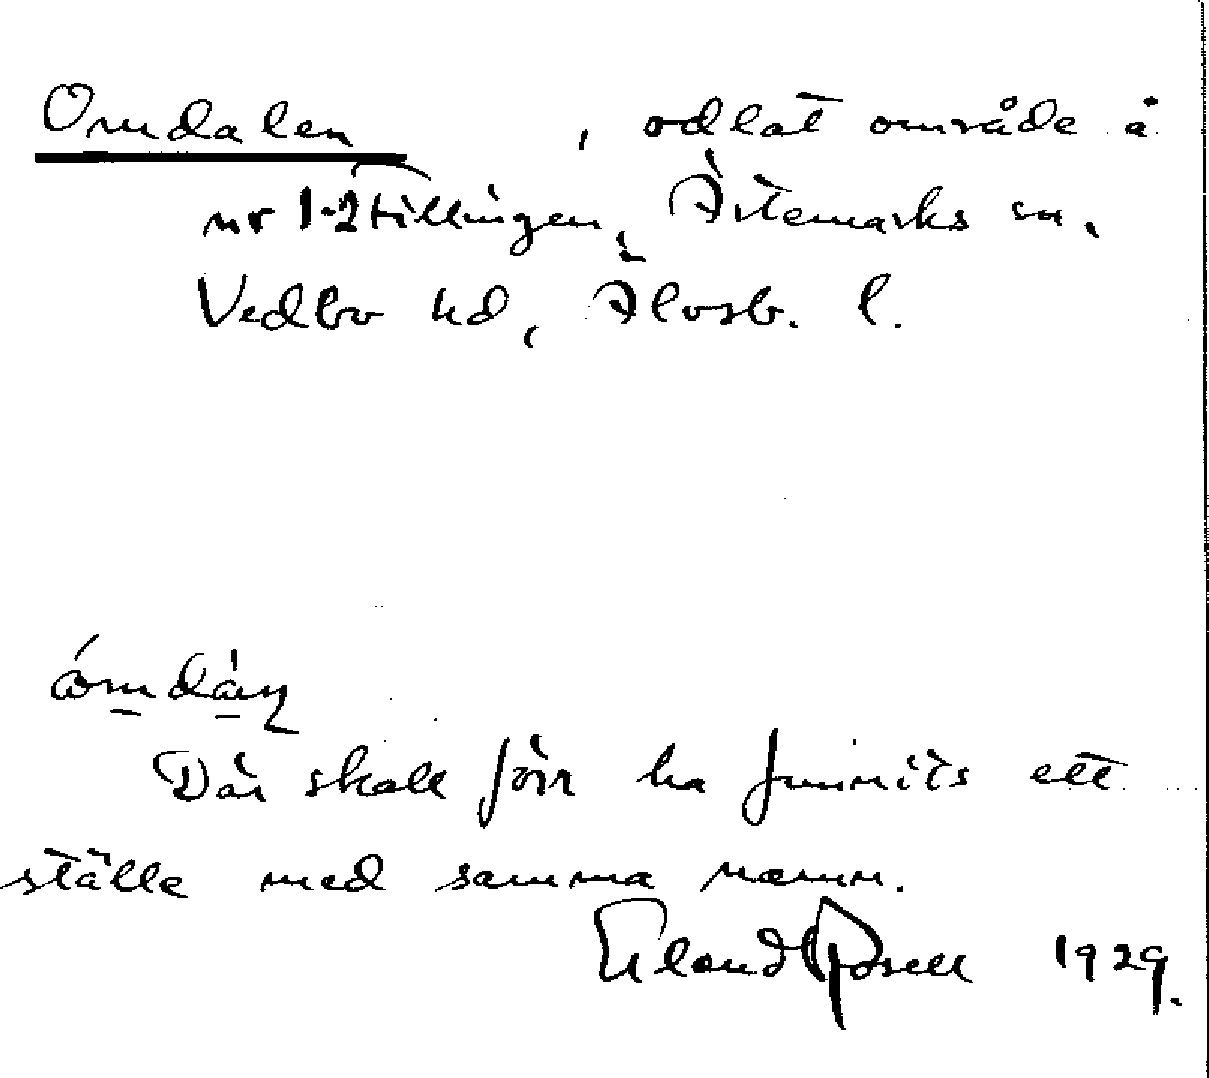 Omdalen, odlat område å
nr 1-2 Tillingen, Ärtemarks sn.
Vedbo hd, Älvsb. l.
Där skall förr ha funnits ett
ställe med samma namn.
Erland Rosell 1929.